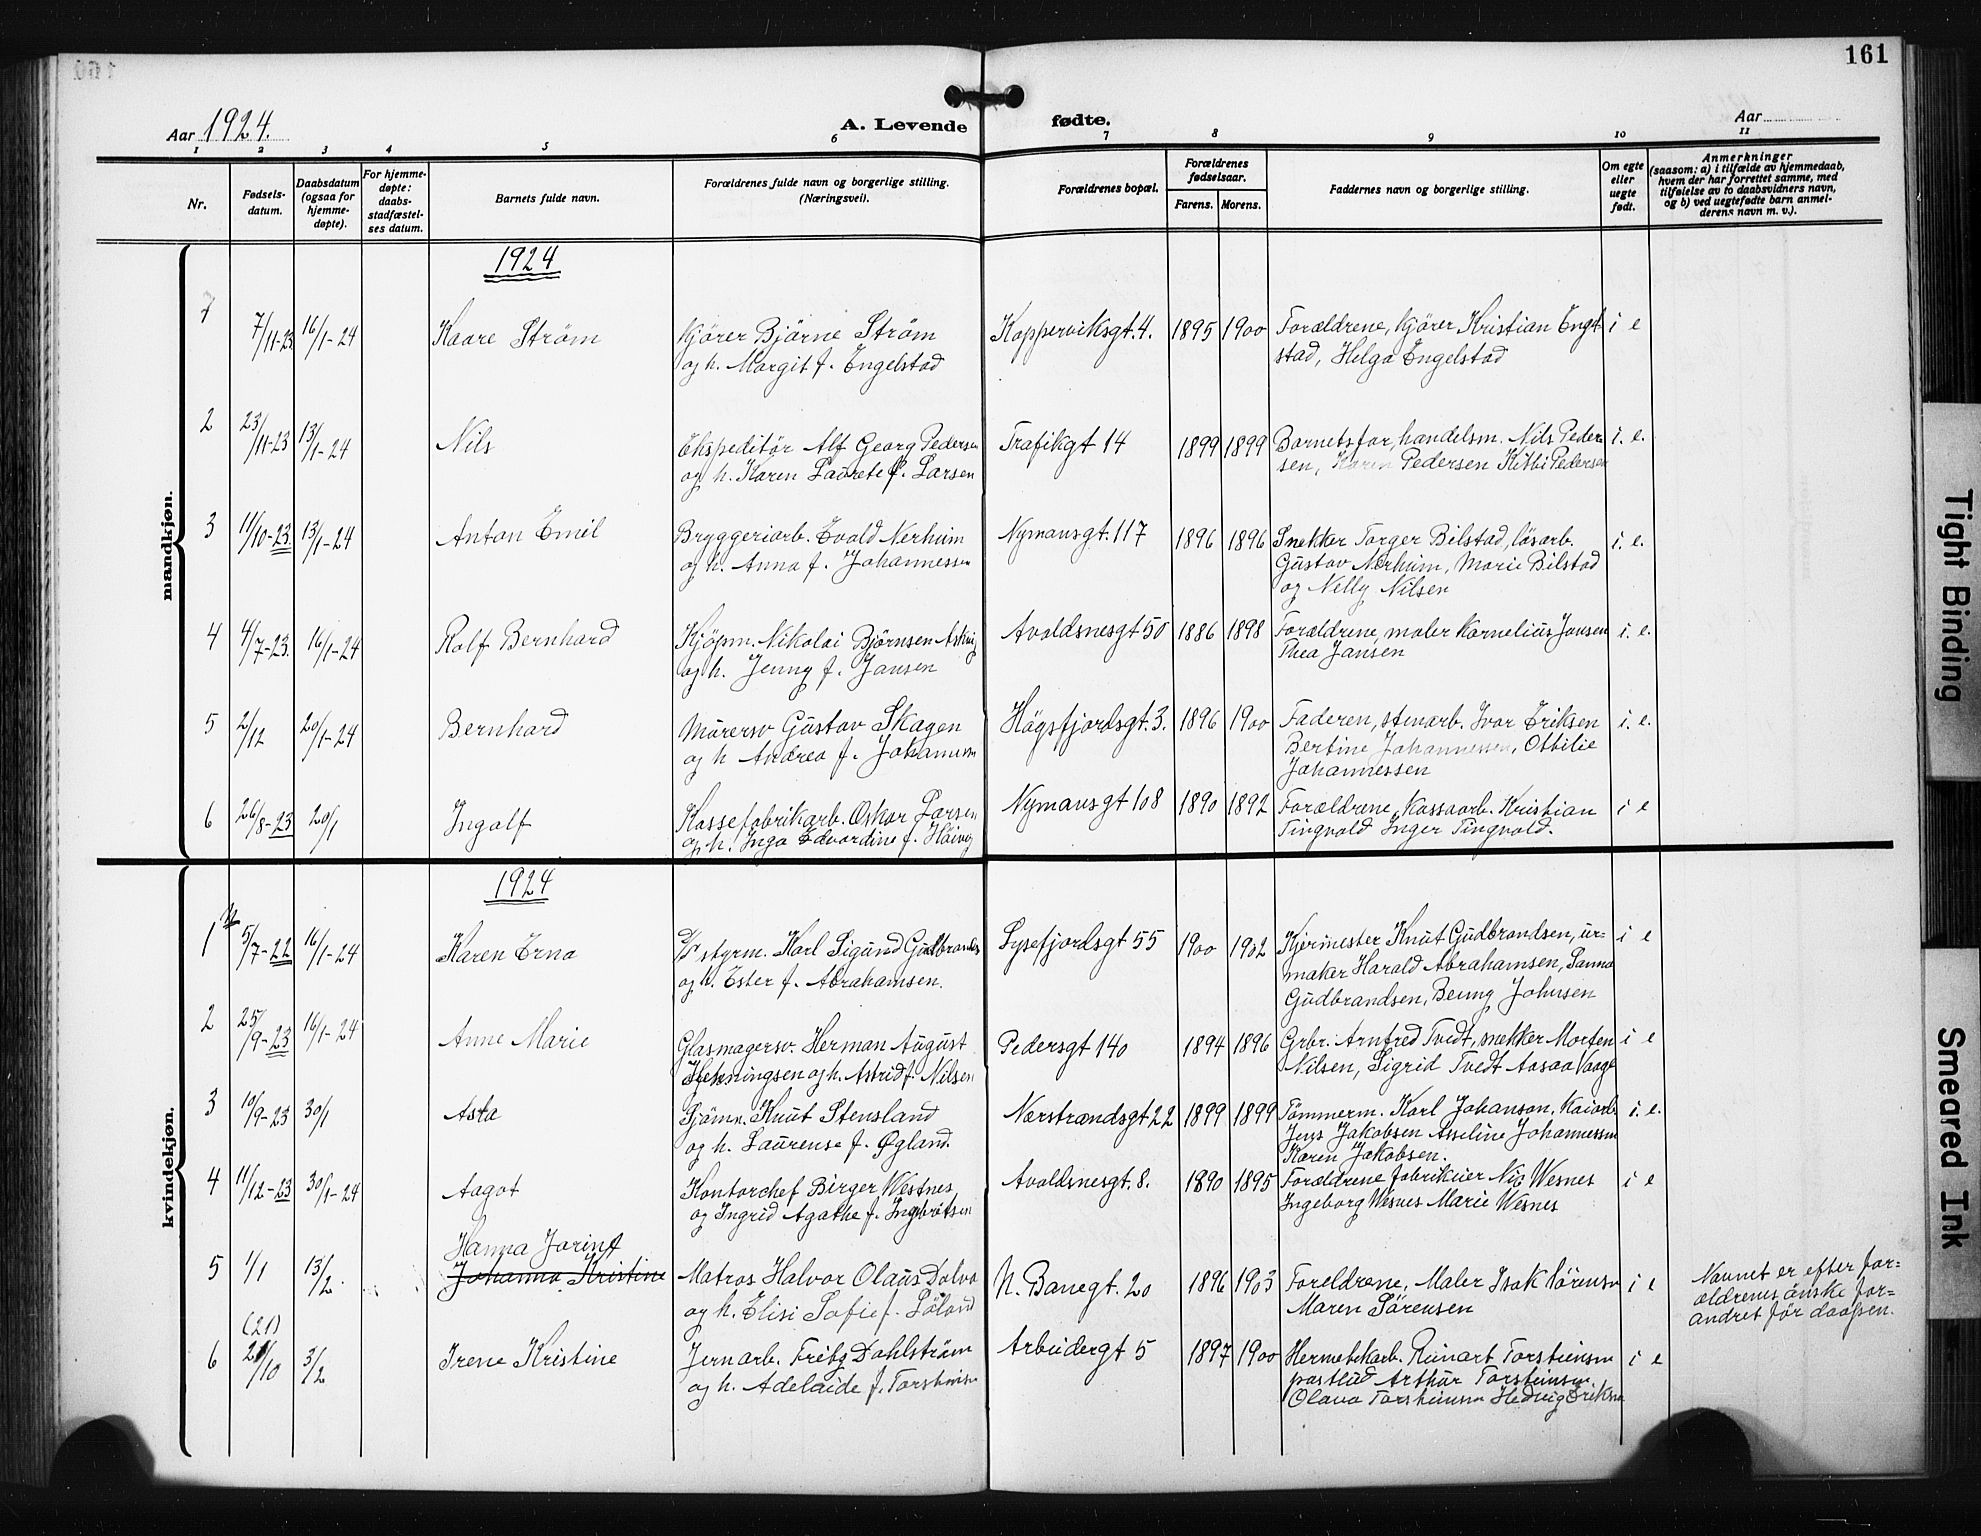 161
Aar 1924.
A. Levende fødte.
Aar
1 2 3 4 5 6 7 8 9 10 11
Nr.
Fødsels-
datum.
Daabsdatum
(ogsaa for
hjemme-
døpte).
For hjemme-
døpte:
daabs-
stadfæstel-
ses datum.
Barnets fulde navn.
Forældrenes fulde navn og borgerlige stilling.
(Næringsvei).
Forældrenes bopæl.
Forældrenes
fødselsaar.
Farens. Morens.
Faddernes navn og borgerlige stilling.
Om egte
eller
uegte
født.
Anmerkninger
(saasom: a) i tilfælde av hjemmedaab,
hvem der har forrettet samme, med
tilføielse av to daabsvidners navn,
og b) ved uegtefødte barn anmel-
derens navn m. v.).
mandkjøn.
1924
1 7/11-23 16/1-24 Kaare Strøm Kjører Bjørne Strøm Kopperviksgt. 4. 1895 1900 Forældrene, kjører Kristian Engel i e
og h. Margit f. Engelstad stad, Helga Engelstad
2 23/11-23 13/1-24 Nils Ekspeditør Alf Georg Pedersen Trafikgt 14 1899 1899 Barnets far, handelsm. Nils Peder i. e.
og h. Karen Laurete f. Larsen sen, Karen Pedersen Kitti Pedersen
3 11/10-23 13/1-24 Anton Emil Bryggeriarb. Evald Nerheim Nymansgt. 117 1896 1896 Snekker Torger Bilstad, løsarb. i. e.
og h. Anna f. Johannessen Gustav Nerheim, Marie Bilstad
og Nelly Nilsen
4 4/7-23. 16/1-24 Rolf Bernhard Kjøpm. Nikolai Bjørnsen Askvig Avaldsnesgt 50 1886 1898 Forældrene, maler Kornelius Jansen i. e.
og h. Jenny f. Jansen Thea Jansen
5 2/12 20/1-24 Bernhard Murersv Gustav Skagen Høgsfjordsgt. 3. 1896 1900 Faderen, stenarb. Ivar Eriksen i. e.
og h Andrea f. Johannessen Bertine Johannessen, Ottilie
Johannessen
6 26/8-23 20/1 Ingolf Kassefabrikarb. Oskar Larsen Nymansgt 108 1890 1892 Forældrene, kassaarb. Kristian i e
og h. Inga Edvardine f. Høivig Tingvold Inger Tingvold.
kvindekjøn.
1924
1 5/7-22 16/1-24 Karen Erna styrm. Karl Sigund Gudbrandsen Lysefjordsgt 55 1900 1902 Kjørmester Knut Gudbrandsen, ur- i e
og h. Ester f. Abrahamsen. maker Harald Abrahamsen, Sanna
Gudbrandsen, Benny Johnsen
2 25/9-23 16/1-24 Anne Marie Glasmagersv. Herman August Pedersgt 140 1894 1896 Grbr. Arnfred Tvedt, snekker Morten i e
Henningsen og h. Astrid f. Nilsen Nilsen, Sigrid Tvedt Aasaa Vaage
3 10/9-23 30/1 Asta Sjøm. Knut Stensland Nærstrandsgt 22 1899 1899 Tømmerm. Karl Johanson, Kaiarb. i. e.
og h. Laurense f. Øgland. Jens Jakobsen Asseline Johannessen
Karen Jakobsen.
4 11/12-23 30/1-24 Aagot Kontorchef Birger Westnes Avaldsnesgt. 8. 1890 1895 Forældrene fabrikeier Nic Wesnes i e
og Ingrid Agathe f. Ingebretsen Ingeborg Wesnes Marie Wesnes
Hanna Jorine
5 1/1 13/2. Johanna Kristine Matros Halvor Olaus Dalva N. Banegt. 20 1896 1903 Foreldrene, Maler Isak Sørensen i e Navnet er efter for-
og h. Elisi Sofie f. Løland Maren Sørensen ældrenes ønske for-
andret før daapen.
(21)
6 21/10 3/2 Irene Kristine Jernarb. Fritz Dahlstrøm Arbeidergt 5 1897 1900 Hermetikarb. Reinart Torsteinsen i e
og h. Adelaide f. Torsteinsen postbud Arthur Torsteinsen.
Olava Torsteinsen Hedvig Eriksen
Tight Binding
Smeared Ink